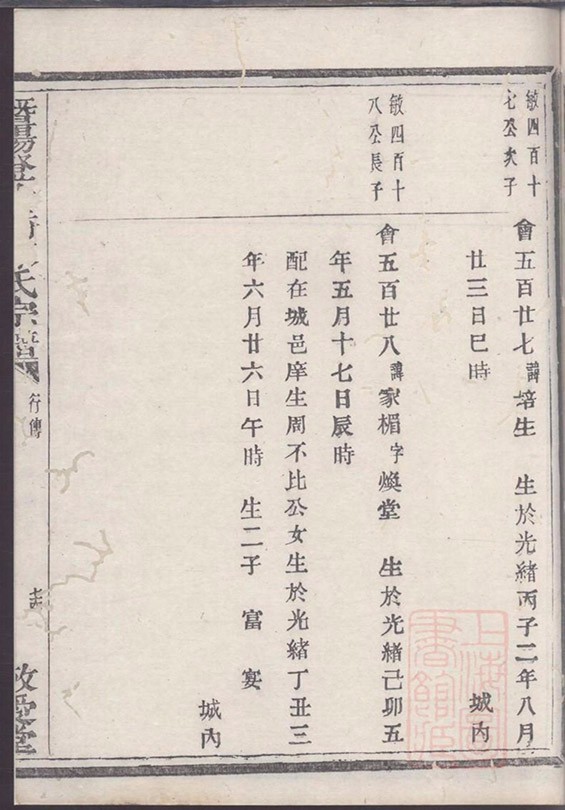 敏四百十
七公次子
會五百廿七諱培生　生於光緒丙子二年八月
廿三日巳時　城內
敏四百十
八公長子
會五百廿八諱家楣字煥堂　生於光緒己卯五
年五月十七日辰時
配在城邑庠生周不比公女生於光緒丁丑三
年六月廿六日午時　生二子　富　宴
城內
氏宗譜
行傳
敬愛堂
上海圖書館藏